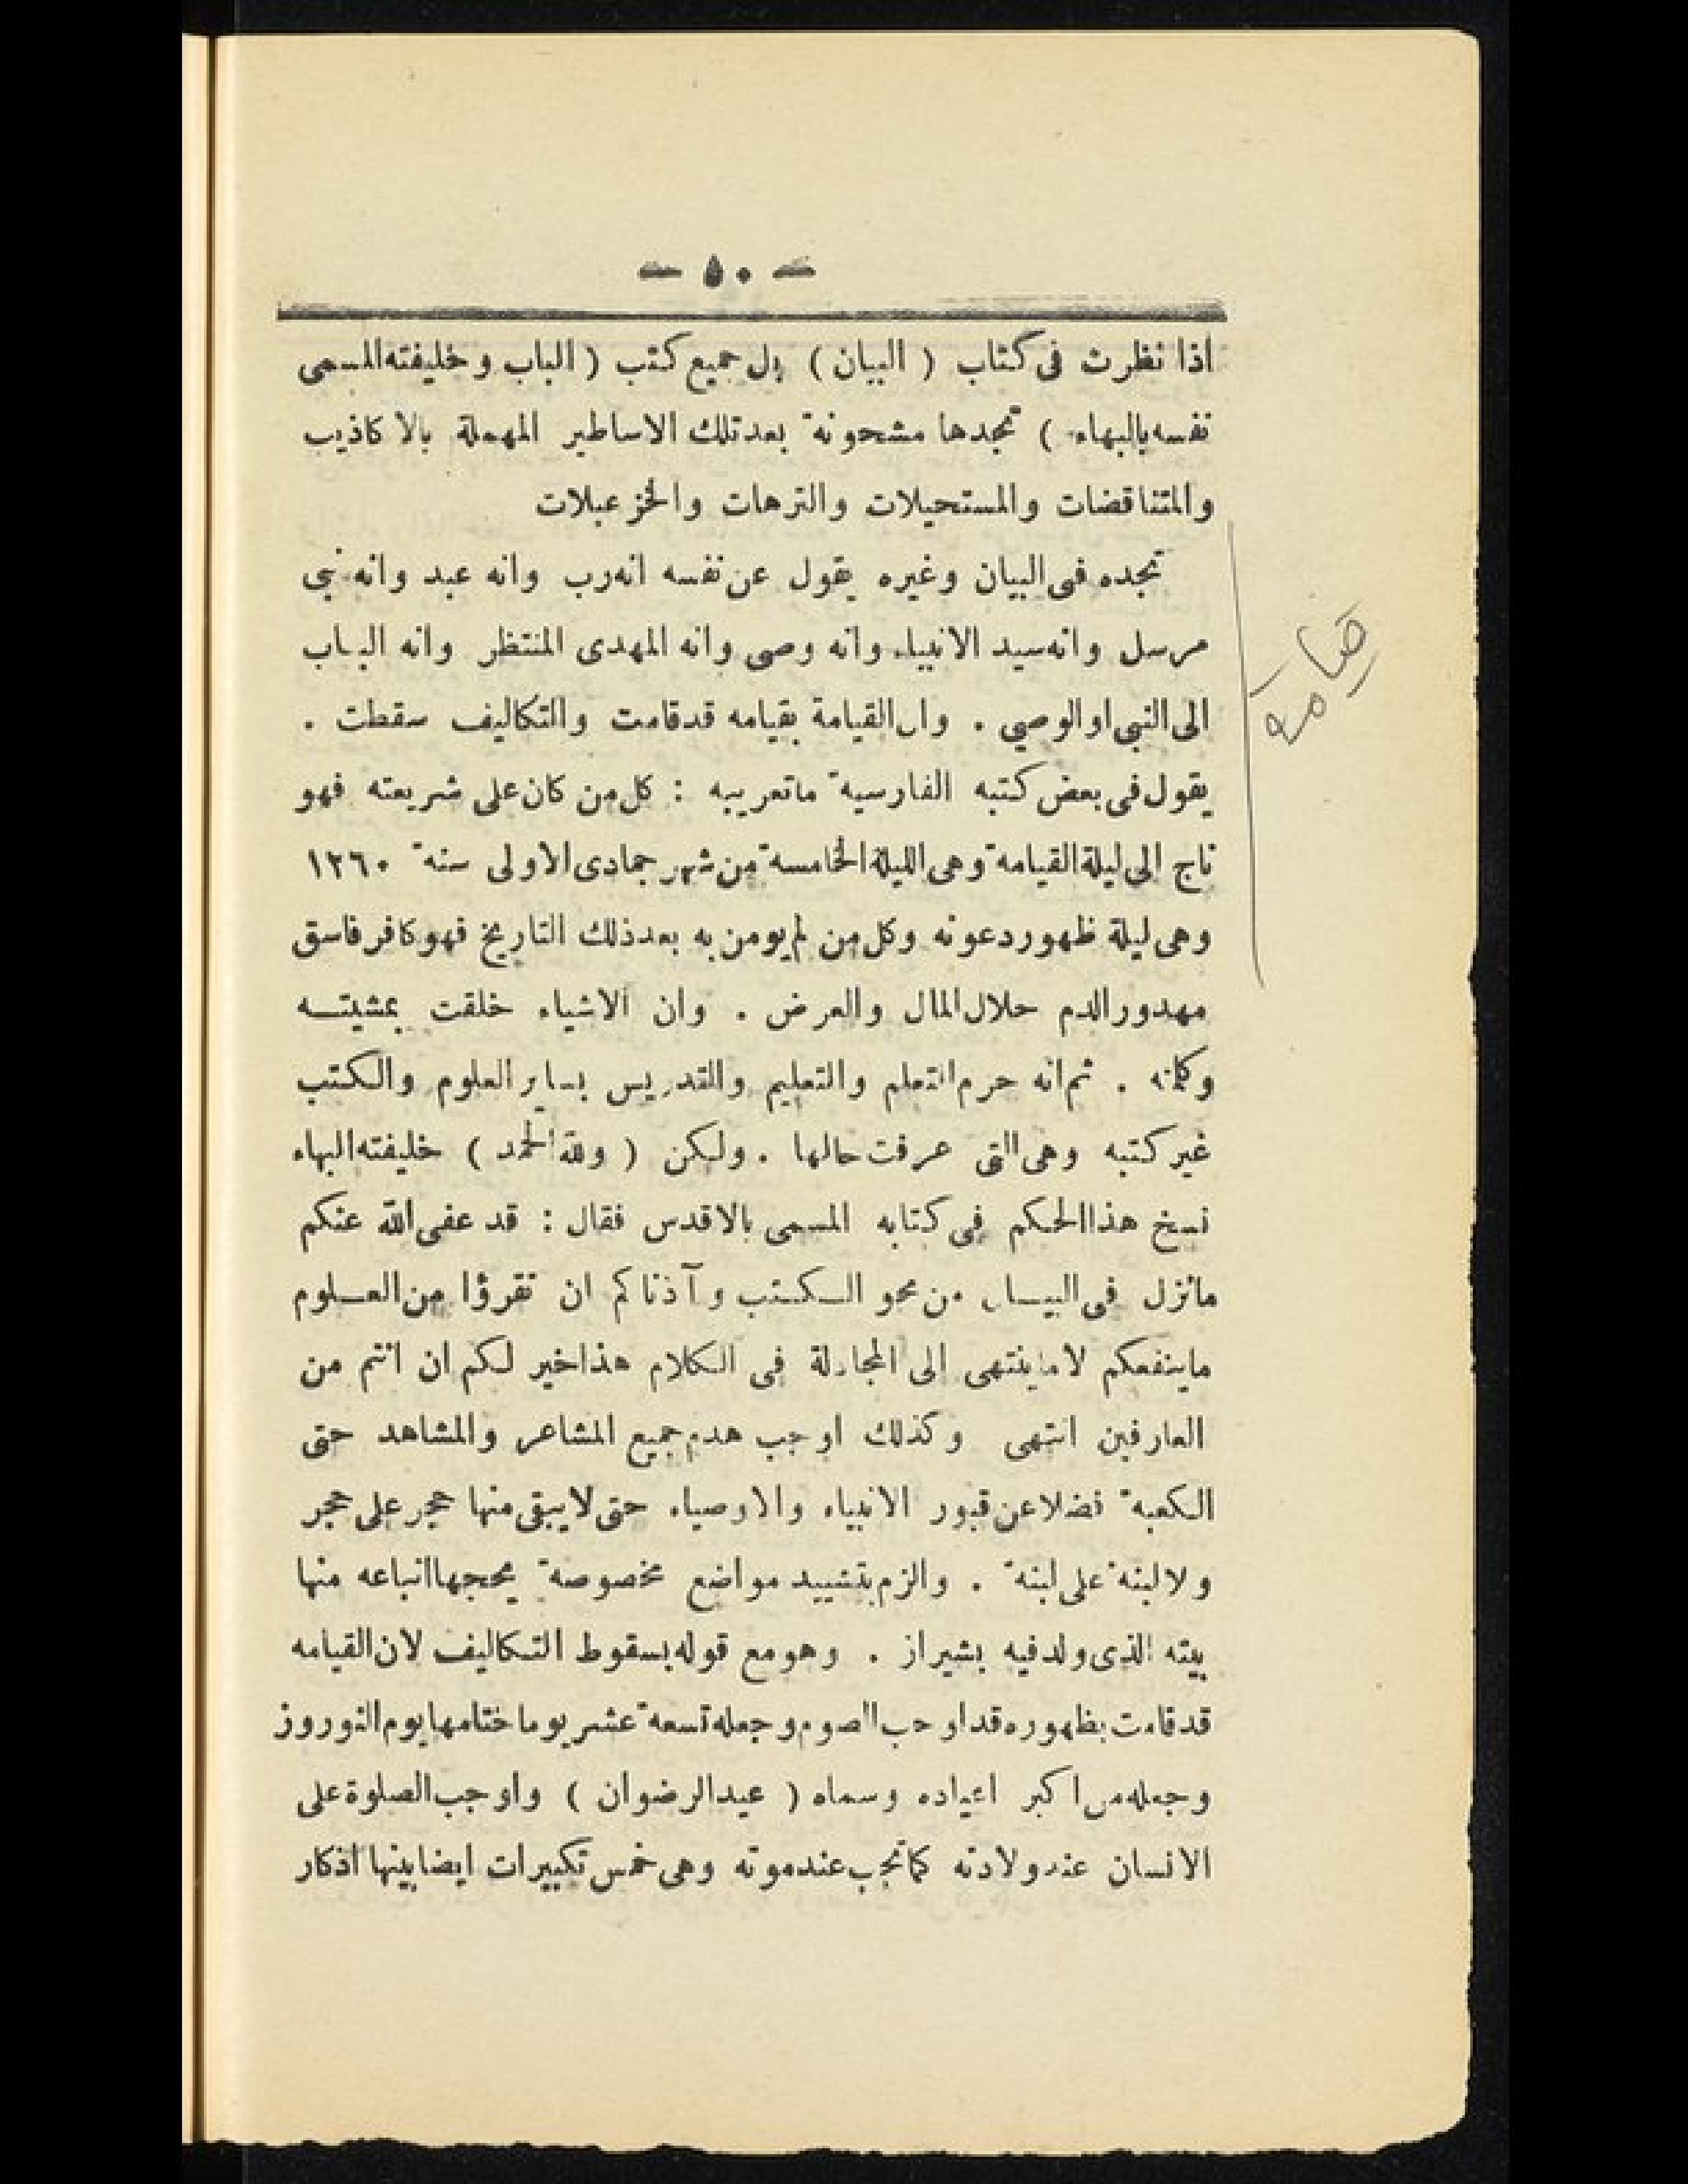 — ٥٠ —
اذا نظرت فى كتاب ( البيان ) بل جميع كتب ( الباب و خليفته المسمى
نفسه بالبهاء ) تجدها مشحونة بعد تلك الاساطير المهملة بالاكاذيب
والمتناقضات والمستحيلات والترهات والخزعبلات
تجده فى البيان وغيره يقول عن نفسه انه رب وانه عبد وانه نبى
مرسل وانه سيد الانبياء وانه وصى وانه المهدى المنتظر وانه الباب
الى النبى او الوصى . وان القيامة بقيامه قد قامت والتكاليف سقطت .
يقول فى بعض كتبه الفارسية ما تعريبه : كل من كان على شريعته فهو
ناج الى ليلة القيامة وهى الليلة الخامسة من شهر جمادى الاولى سنة ١٢٦٠
وهى ليلة ظهور دعوته وكل من لم يومن به بعد ذلك التاريخ فهو كافر فاسق
مهدور الدم حلال المال والعرض . وان الاشياء خلقت بمشيتـــه
وكلمته . ثم انه حرم التعلم والتعليم والتدريس بساير العلوم والكتب
غير كتبه وهى التى عرفت حالها . ولكن ( ولله الحمد ) خليفته البهاء
نسخ هذا الحكم فى كتابه المسمى بالاقدس فقال : قد عفى الله عنكم
مانزل فى البيـــان من محو الـــكـــتب وآذناكم ان تقرؤا من العـــلوم
ماينفعكم لا ماينتهى الى المجادلة فى الكلام هذا خير لكم ان انتم من
العارفين انتهى وكذلك اوجب هدم جميع المشاعر والمشاهد حتى
الكعبة فضلا عن قبور الانبياء والاوصياء حتى لايبقى منها حجر على حجر
ولا لبنة على لبنة . والزم بتشييد مواضع مخصوصة يحجها اتباعه منها
بيته الذى ولد فيه بشيراز . وهو مع قوله بسقوط التكاليف لان القيامه
قد قامت بظهوره قد اوجب الصوم وجعله تسعة عشر يوما ختامها يوم النوروز
وجعله من اكبر اعياده وسماه ( عيد الرضوان ) واوجب الصلوة على
الانسان عند ولادته كما تجب عند موته وهى خمس تكبيرات ايضا بينها اذكار